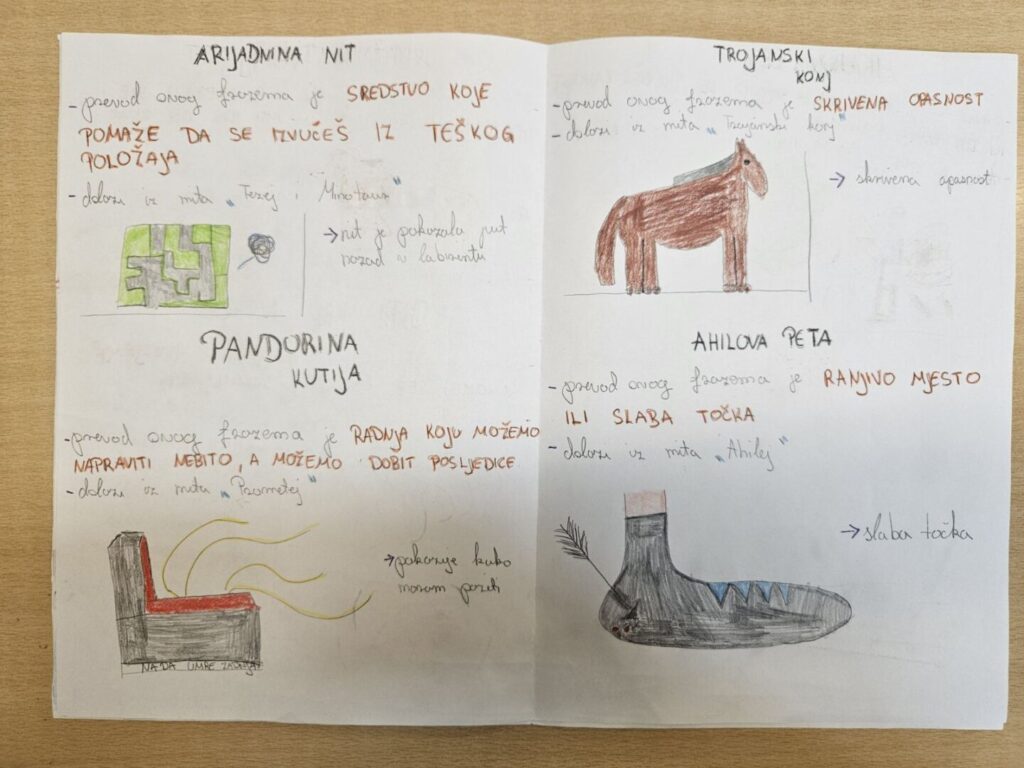 ARIJADNINA NIT
- prevod ovog frazema je SREDSTVO KOJE
POMAŽE DA SE IZVUČEŠ IZ TEŠKOG
POLOŽAJA
- dolazi iz mita "Tezej i Minotaur"
→ nit je pokazala put
nazad u labirintu
PANDORINA
KUTIJA
- prevod ovog frazema je RADNJA KOJU MOŽEMO
NAPRAVITI NEBITO, A MOŽEMO DOBIT POSLJEDICE
- dolazi iz mita "Prometej"
→ pokazuje kako
moram paziti
NADA UMRE ZADNJA
TROJANSKI
KONJ
- prevod ovog frazema je SKRIVENA OPASNOST
- dolazi iz mita "Trojanski konj"
→ skrivena opasnost
AHILOVA PETA
- prevod ovog frazema je RANJIVO MJESTO
ILI SLABA TOČKA
- dolazi iz mita "Ahilej"
→ slaba točka